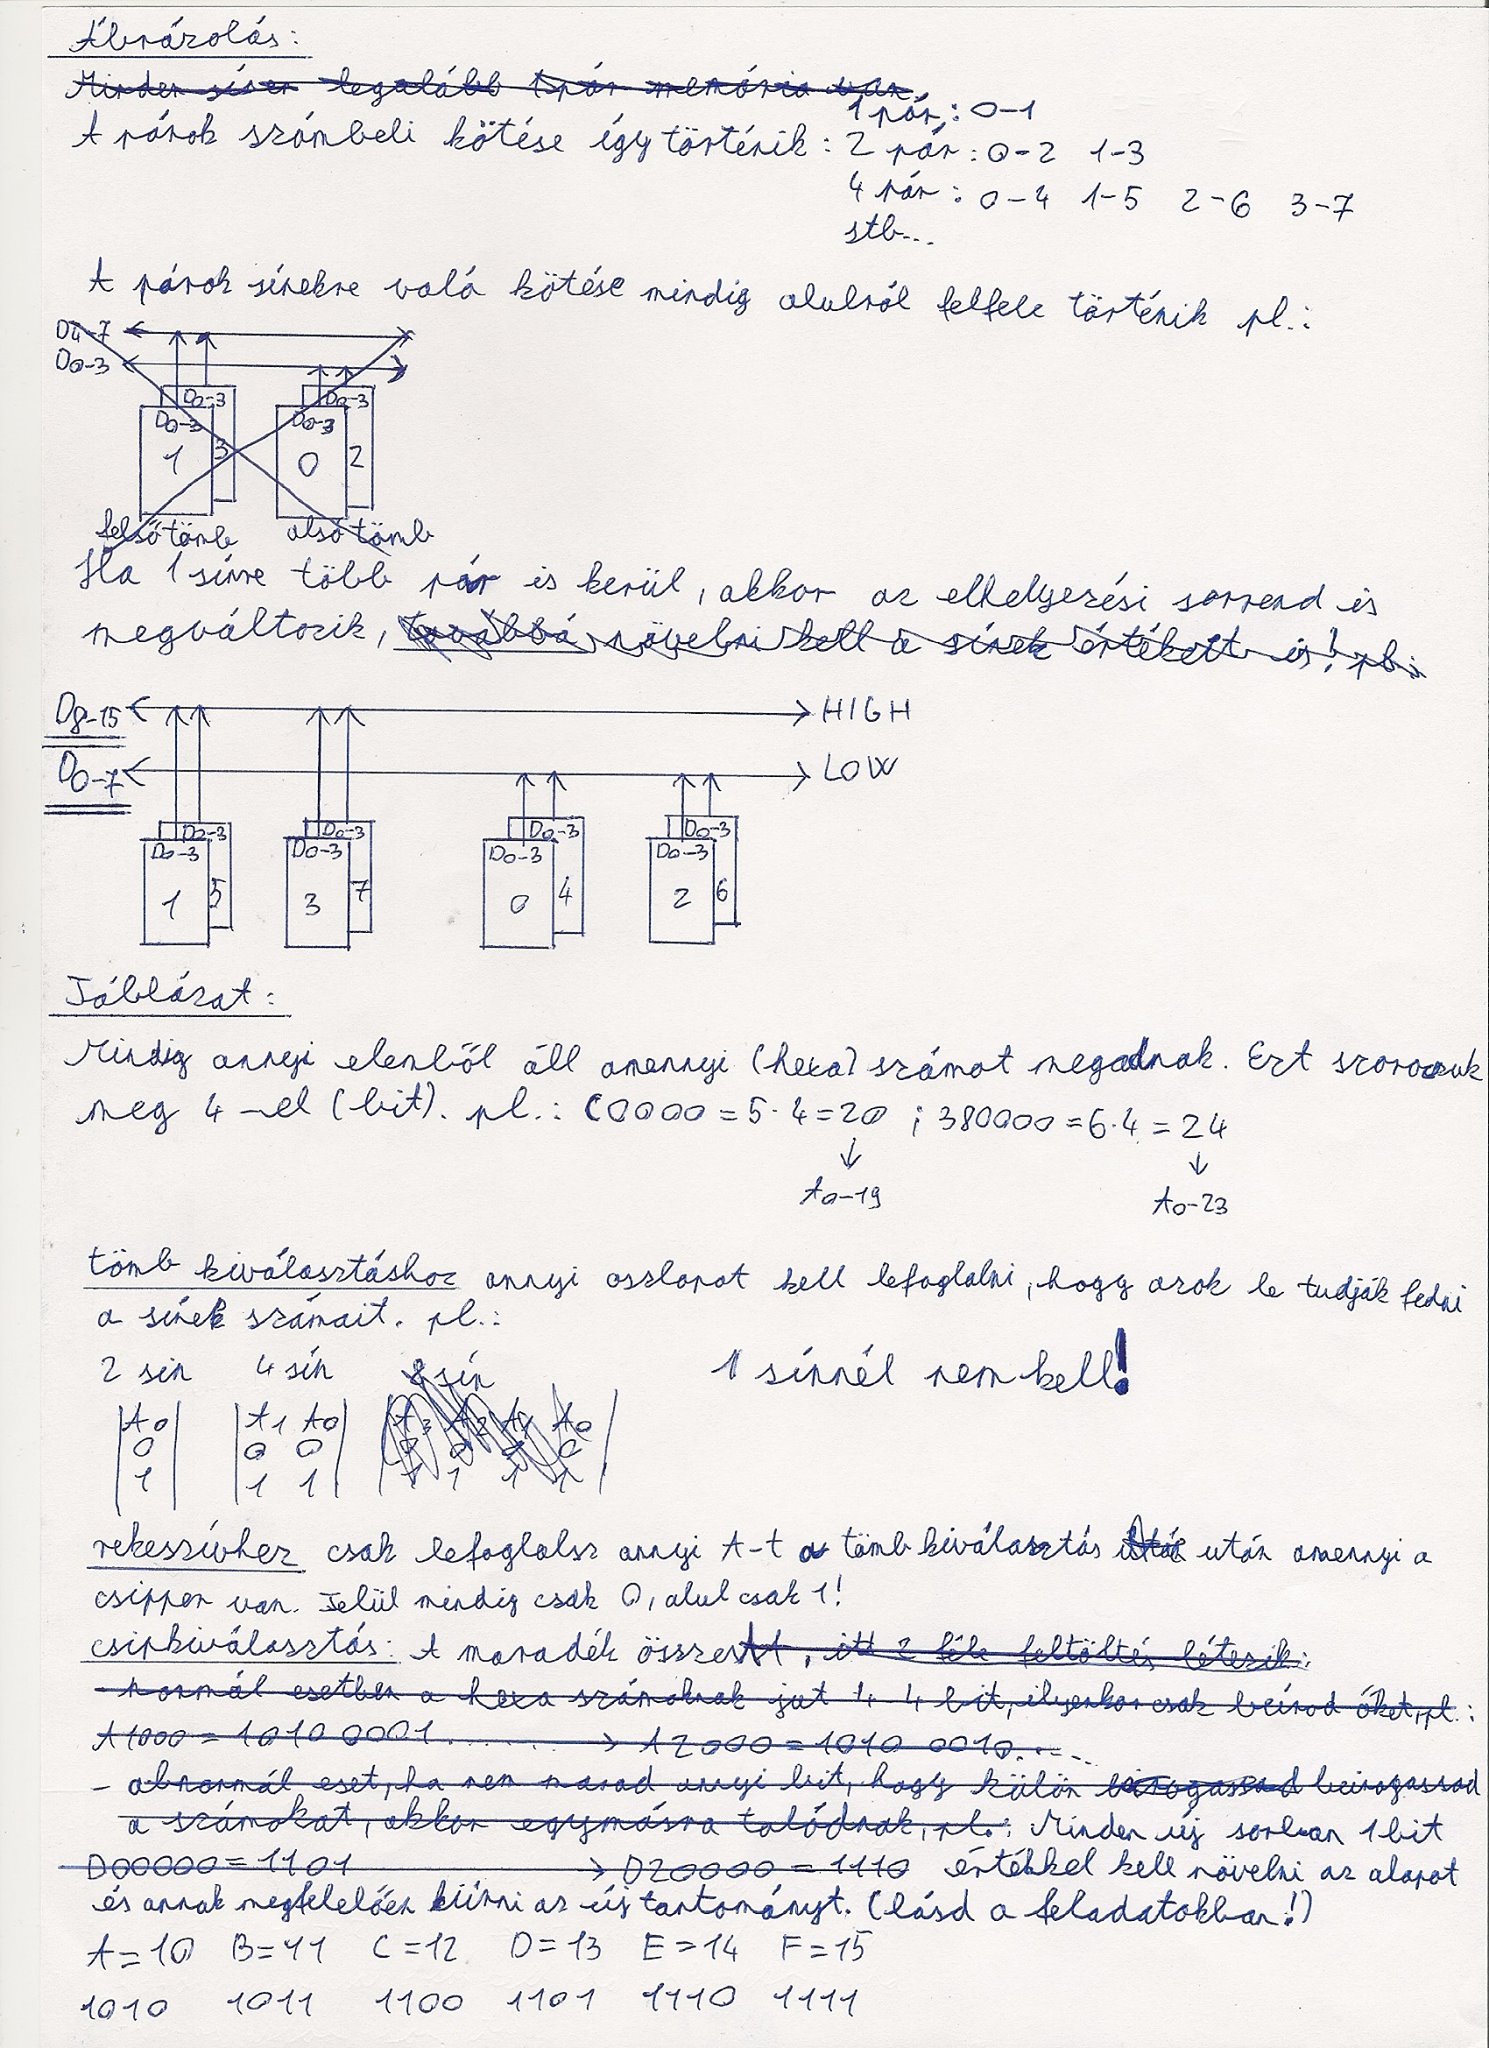 Ábrázolás:
Minden sínen legalább 1 pár memória van.
1 pár: 0-1
A párok számbeli kötése így történik: 2 pár: 0-2 1-3
4 pár: 0-4 1-5 2-6 3-7
stb...
A párok sínekre való kötése mindig alulról felfele történik pl.:
D4-7
D0-3
D0-3 D0-3
D0-3 D0-3
1 3 0 2
felső tömb alsó tömb
Ha 1 sínre több pár is kerül, akkor az elhelyezési sorrend is
megváltozik, továbbá növelni kell a sínek értékeit is! pl.:
D8-15 HIGH
D0-7 LOW
D0-3 D0-3 D0-3 D0-3
D0-3 D0-3 D0-3 D0-3
1 5 3 7 0 4 2 6
Táblázat:
Mindig annyi elemből áll amennyi (hexa) számot megadnak. Ezt szorozzuk
meg 4-el (bit). pl.: C0000 = 5·4 = 20 ; 380000 = 6·4 = 24
A0-19 A0-23
tömb kiválasztáshoz annyi oszlopot kell lefoglalni, hogy azok le tudják fedni
a sínek számait. pl.:
2 sin 4 sín 8 sín 1 sínnél nem kell!
A0 A1 A0 A3 A2 A1 A0
0 0 0 0 0 0 0
1 1 1 1 1 1 1
rekeszívhez csak lefoglalsz annyi A-t a tömb kiválasztás után amennyi a
csippen van. Felül mindig csak 0, alul csak 1!
csipkiválasztás: A maradék összes A, itt 2 féle feltöltés létezik:
- normál esetben a hexa számoknak jut 4-4 bit, ilyenkor csak beírod őket, pl.:
A1000 = 1010 0001 ........ → A2000 = 1010 0010.....
- abnormál eset, ha nem marad annyi bit, hogy külön beírogassad
a számokat, akkor egymásra tolódnak, pl.: Minden új sorban 1 bit
D00000 = 1101 → D20000 = 1110 értékkel kell növelni az alapot
és annak megfelelően kiírni az új tartományt. (lásd a feladatokban!)
A=10 B=11 C=12 D=13 E=14 F=15
1010 1011 1100 1101 1110 1111